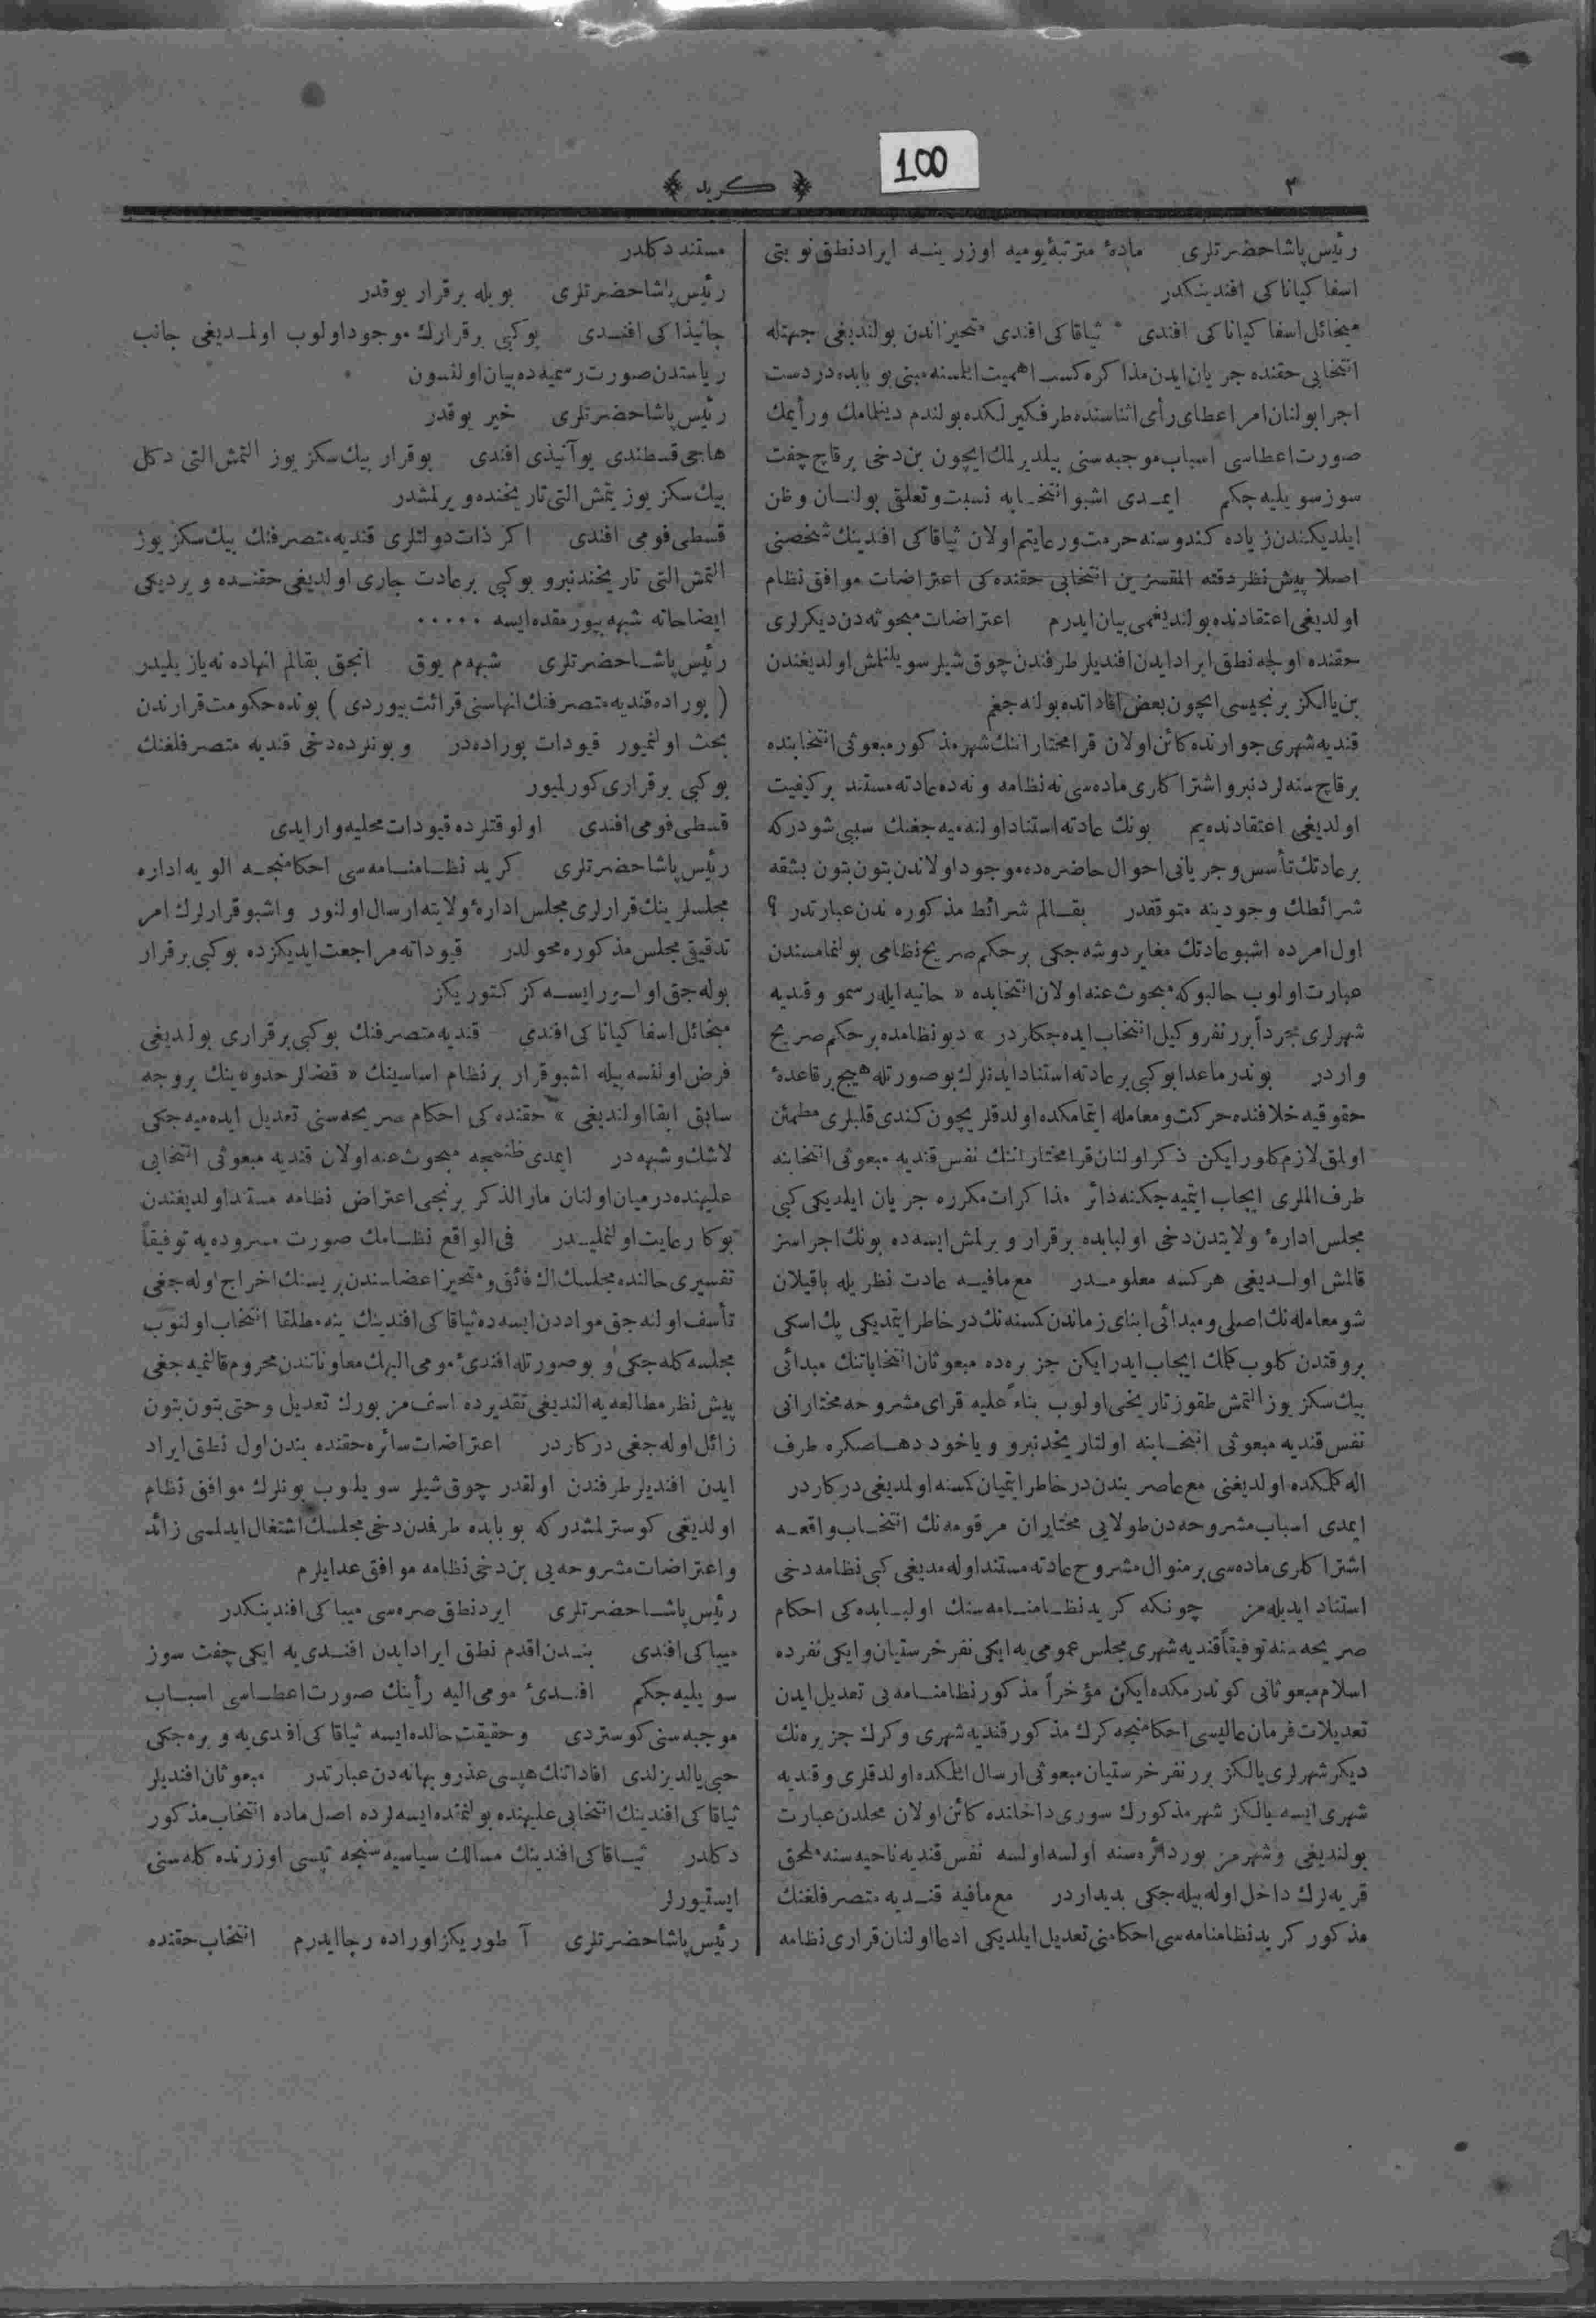 100
﴿ كريد ﴾
٣
رئيس پاشا حضرتلری ماده‌ٔ مترتبهٔ يوميه اوزرينه ايراد نطق نوبتی
اسفاكياناكی افندينكدر
ميخائل اسفاكياناكی افندی ثياقاكی افندی متحيزاندن بولنديغی جهتله
انتخابی حقنده جريان ايدن مذاكره كسب اهميت ايلمسنه مبنی بو بابده دردست
اجرا بولنان امر اعطای رأی اثناسنده طرفكيرلكده بولندم دينلمامك ورأيمك
صورت اعطاسی اسباب موجبه سنی بيلديرلمك ايچون بن دخی برقاچ چفت
سوز سويليه جكم ايمدی اشبو انتخابه نسبت وتعلقی بولنان وظن
ايلديكندن زياده كندوسنه حرمت ورعايتم اولان ثياقاكی افندينك شخصنی
اصلا پيش نظر دقته المقسزين انتخابی حقنده كی اعتراضات موافق نظام
اولديغی اعتقادنده بولنديغمی بيان ايدرم اعتراضات مبحوثه دن ديكرلری
حقنده اولجه نطق ايراد ايدن افنديلر طرفندن چوق شيلر سويلنلمش اولديغندن
بن يالكز برنجيسی ايچون بعض افاداتده بولنه جغم
قنديه شهری جوارنده كائن اولان قرا مختاراننك شهر مذكور مبعوثی انتخابنده
برقاچ سنه لردنبرو اشتراكلری ماده سی نه نظامه ونه ده عادته مستند بركيفيت
اولديغی اعتقادنده يم بونك عادته استناد اولنه ميه جغنك سببی شودركه
برعادتك تأسس وجريانی احوال حاضره ده موجود اولاندن بتون بتون بشقه
شرائطك وجودينه متوقفدر بقالم شرائط مذكوره ندن عبارتدر ؟
اول امرده اشبو عادتك مغاير دوشه جكی برحكم صريح نظامی بولنمامسندن
عبارت اولوب حالبوكه مبحوث عنه اولان انتخابده « حانيه ايله رسمو وقنديه
شهرلری مجرداً برر نفر وكيل انتخاب ايده جكلردر » ديو نظامده برحكم صريح
واردر بوندر ماعدا بوكبی برعادته استناد ايدنلرك بوصورتله هيچ برقاعدهٔ
حقوقيه خلافنده حركت ومعامله ايتمامكده اولدقلريچون كندی قلبلری مطمئن
اولمق لازم كلور ايكن ذكر اولنان قرا مختاراننك نفس قنديه مبعوثی انتخابنه
طرف الملری ايجاب ايتميه جكنه دائر مذاكرات مكرره جريان ايلديكی كبی
مجلس ادارهٔ ولايتدن دخی اولبابده برقرار ويرلمش ايسه ده بونك اجراسز
قالمش اولديغی هركسه معلومدر مع مافيه عادت نظريله باقيلان
شو معامله نك اصلی ومبدائی ابنای زماندن كمسنه نك درخاطر ايتمديكی پك اسكی
بروقتدن كلوب كلمك ايجاب ايدر ايكن جزيره ده مبعوثان انتخاباتنك مبدائی
بيك سكز يوز التمش طقوز تاريخی اولوب بناءً عليه قرای مشروحه مختارانی
نفس قنديه مبعوثی انتخابنه اولتاريخدنبرو وياخود دها صكره طرف
اله كلمكده اولديغنی مع عاصريندن درخاطر ايتميان كمسنه اولمديغی دركاردر
ايمدی اسباب مشروحه دن طولايی مختاران مرقومه نك انتخاب واقعه
اشتراكلری ماده سی برمنوال مشروح عادته مستند اوله مديغی كبی نظامه دخی
استناد ايديله مز چونكه كريد نظامنامه سنك اولبابده كی احكام
صريحه سنه توفيقاً قنديه شهری مجلس عمومی يه ايكی نفر خرستيان وايكی نفرده
اسلام مبعوثانی كوندرمكده ايكن مؤخراً مذكور نظامنامه يی تعديل ايدن
تعديلات فرمان عاليسی احكامنجه كرك مذكور قنديه شهری وكرك جزيره نك
ديكر شهرلری يالكز برر نفر خرستيان مبعوثی ارسال ايلمكده اولدقلری وقنديه
شهری ايسه يالكز شهر مذكورك سوری داخلنده كائن اولان محلدن عبارت
بولنديغی وشهرمز بور دائره سنه اولسه اولسه نفس قنديه ناحيه سنه ملحق
قريه لرك داخل اوله بيله جكی بديداردر مع مافيه قنديه متصرفلغنك
مذكور كريد نظامنامه سی احكامنی تعديل ايلديكی ادعا اولنان قراری نظامه
مستند دكلدر
رئيس پاشا حضرتلری بويله برقرار يوقدر
جانيذاكی افندی بوكبی برقرارك موجود اولوب اولمديغی جانب
رياستدن صورت رسميه ده بيان اولنسون
رئيس پاشا حضرتلری خير يوقدر
هاجی قسطندی يوآنيذی افندی بوقرار بيك سكز يوز التمش التی دكل
بيك سكز يوز يتمش التی تاريخنده ويرلمشدر
قسطی فومی افندی اكر ذات دولتلری قنديه متصرفنك بيك سكز يوز
التمش التی تاريخندنبرو بوكبی برعادت جاری اولديغی حقنده ويرديكی
ايضاحاته شبهه بيورمقده ايسه ·····
رئيس پاشا حضرتلری شبهه م يوق انجق بقالم انهاده نه يازيليدر
( بوراده قنديه متصرفنك انهاسنی قرائت بيوردی ) بونده حكومت قرارندن
بحث اولنميور قيودات بوراده در وبونلرده دخی قنديه متصرفلغنك
بوكبی برقراری كورلميور
قسطی فومی افندی اولوقتلرده قيودات محليه وار ايدی
رئيس پاشا حضرتلری كريد نظامنامه سی احكامنجه الويه اداره
مجلسلرينك قرارلری مجلس ادارهٔ ولايته ارسال اولنور واشبو قرارلرك امر
تدقيقی مجلس مذكوره محولدر قيوداته مراجعت ايديكزده بوكبی برقرار
بوله جق اولور ايسه كز كتوريكز
ميخائل اسفاكياناكی افندی قنديه متصرفنك بوكبی برقراری بولديغی
فرض اولنسه بيله اشبو قرار برنظام اساسينك « قضالر حدودينك بروجه
سابق ابقا اولنديغی » حقنده كی احكام صريحه سنی تعديل ايده ميه جكی
لاشك وشبهه در ايمدی ظنمجه مبحوث عنه اولان قنديه مبعوثی انتخابی
عليهنده درميان اولنان مارالذكر برنجی اعتراض نظامه مستند اولديغندن
بوكا رعايت اولنمليدر فی الواقع نظامك صورت مسروده يه توفيقاً
تفسيری حالنده مجلسك اك فائق ومتحيز اعضاسندن بريسنك اخراج اوله جغی
تأسف اولنه جق مواددن ايسه ده ثياقاكی افندينك ينه مطلقا انتخاب اولنوب
مجلسه كله جكی و بوصورتله افندیٔ مومی اليهك معاوناتندن محروم قالنميه جغی
پيش نظر مطالعه يه النديغی تقديرده اسفمز بورك تعديل وحتی بتون بتون
زائل اوله جغی دركاردر اعتراضات سائره حقنده بندن اول نطق ايراد
ايدن افنديلر طرفندن اولقدر چوق شيلر سويليوب بونلرك موافق نظام
اولديغی كوسترلمشدركه بو بابده طرفمدن دخی مجلسك اشتغال ايدلمسی زائد
واعتراضات مشروحه يی بن دخی نظامه موافق عد ايلرم
رئيس پاشا حضرتلری ايراد نطق صره سی ميباكی افندينكدر
ميباكی افندی بندن اقدم نطق ايراد ايدن افندی يه ايكی چفت سوز
سويليه جكم افندیٔ مومی اليه رأينك صورت اعطاسی اسباب
موجبه سنی كوستردی وحقيقت حالده ايسه ثياقاكی افندی يه ويره جكی
حبی يالديزلدی افاداتنك هپسی عذر وبهانه دن عبارتدر مبعوثان افنديلر
ثياقاكی افندينك انتخابی عليهنده بولنمقده ايسه لرده اصل ماده انتخاب مذكور
دكلدر ثياقاكی افندينك مسالك سياسيه سنجه تپسی اوزرنده كله سنی
ايستيورلر
رئيس پاشا حضرتلری آ طوريكز اوراده رجا ايدرم انتخاب حقنده